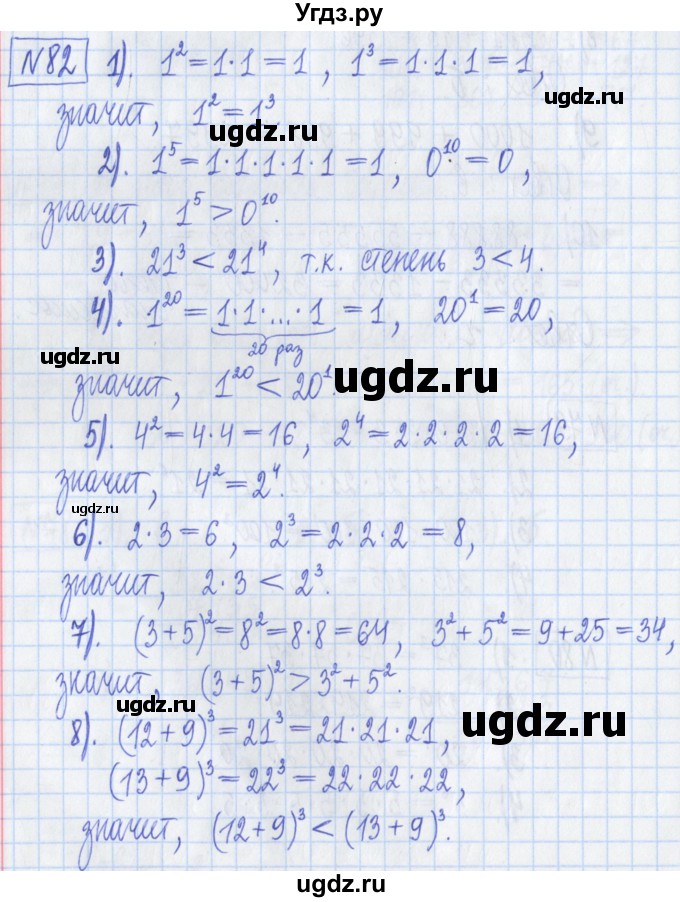 Угдз.ру
№82 1). 1² = 1·1 = 1, 1³ = 1·1·1 = 1,
ugdz.ru
значит, 1² = 1³.
ugdz.ru
2). 1⁵ = 1·1·1·1·1 = 1, 0¹⁰ = 0,
значит, 1⁵ > 0¹⁰.
ugdz.ru
3). 21³ < 21⁴, т.к. степень 3 < 4.
4). 1²⁰ = 1·1·...·1 = 1, 20¹ = 20,
20 раз
ugdz.ru
ugdz.ru
значит, 1²⁰ < 20¹.
5). 4² = 4·4 = 16, 2⁴ = 2·2·2·2 = 16,
значит, 4² = 2⁴.
ugdz.ru
6). 2·3 = 6, 2³ = 2·2·2 = 8,
значит, 2·3 < 2³.
7). (3+5)² = 8² = 8·8 = 64, 3²+5² = 9+25 = 34,
значит, (3+5)² > 3²+5².
ugdz.ru
ugdz.ru
8). (12+9)³ = 21³ = 21·21·21,
(13+9)³ = 22³ = 22·22·22,
значит, (12+9)³ < (13+9)³.
ugdz.ru
ugdz.ru